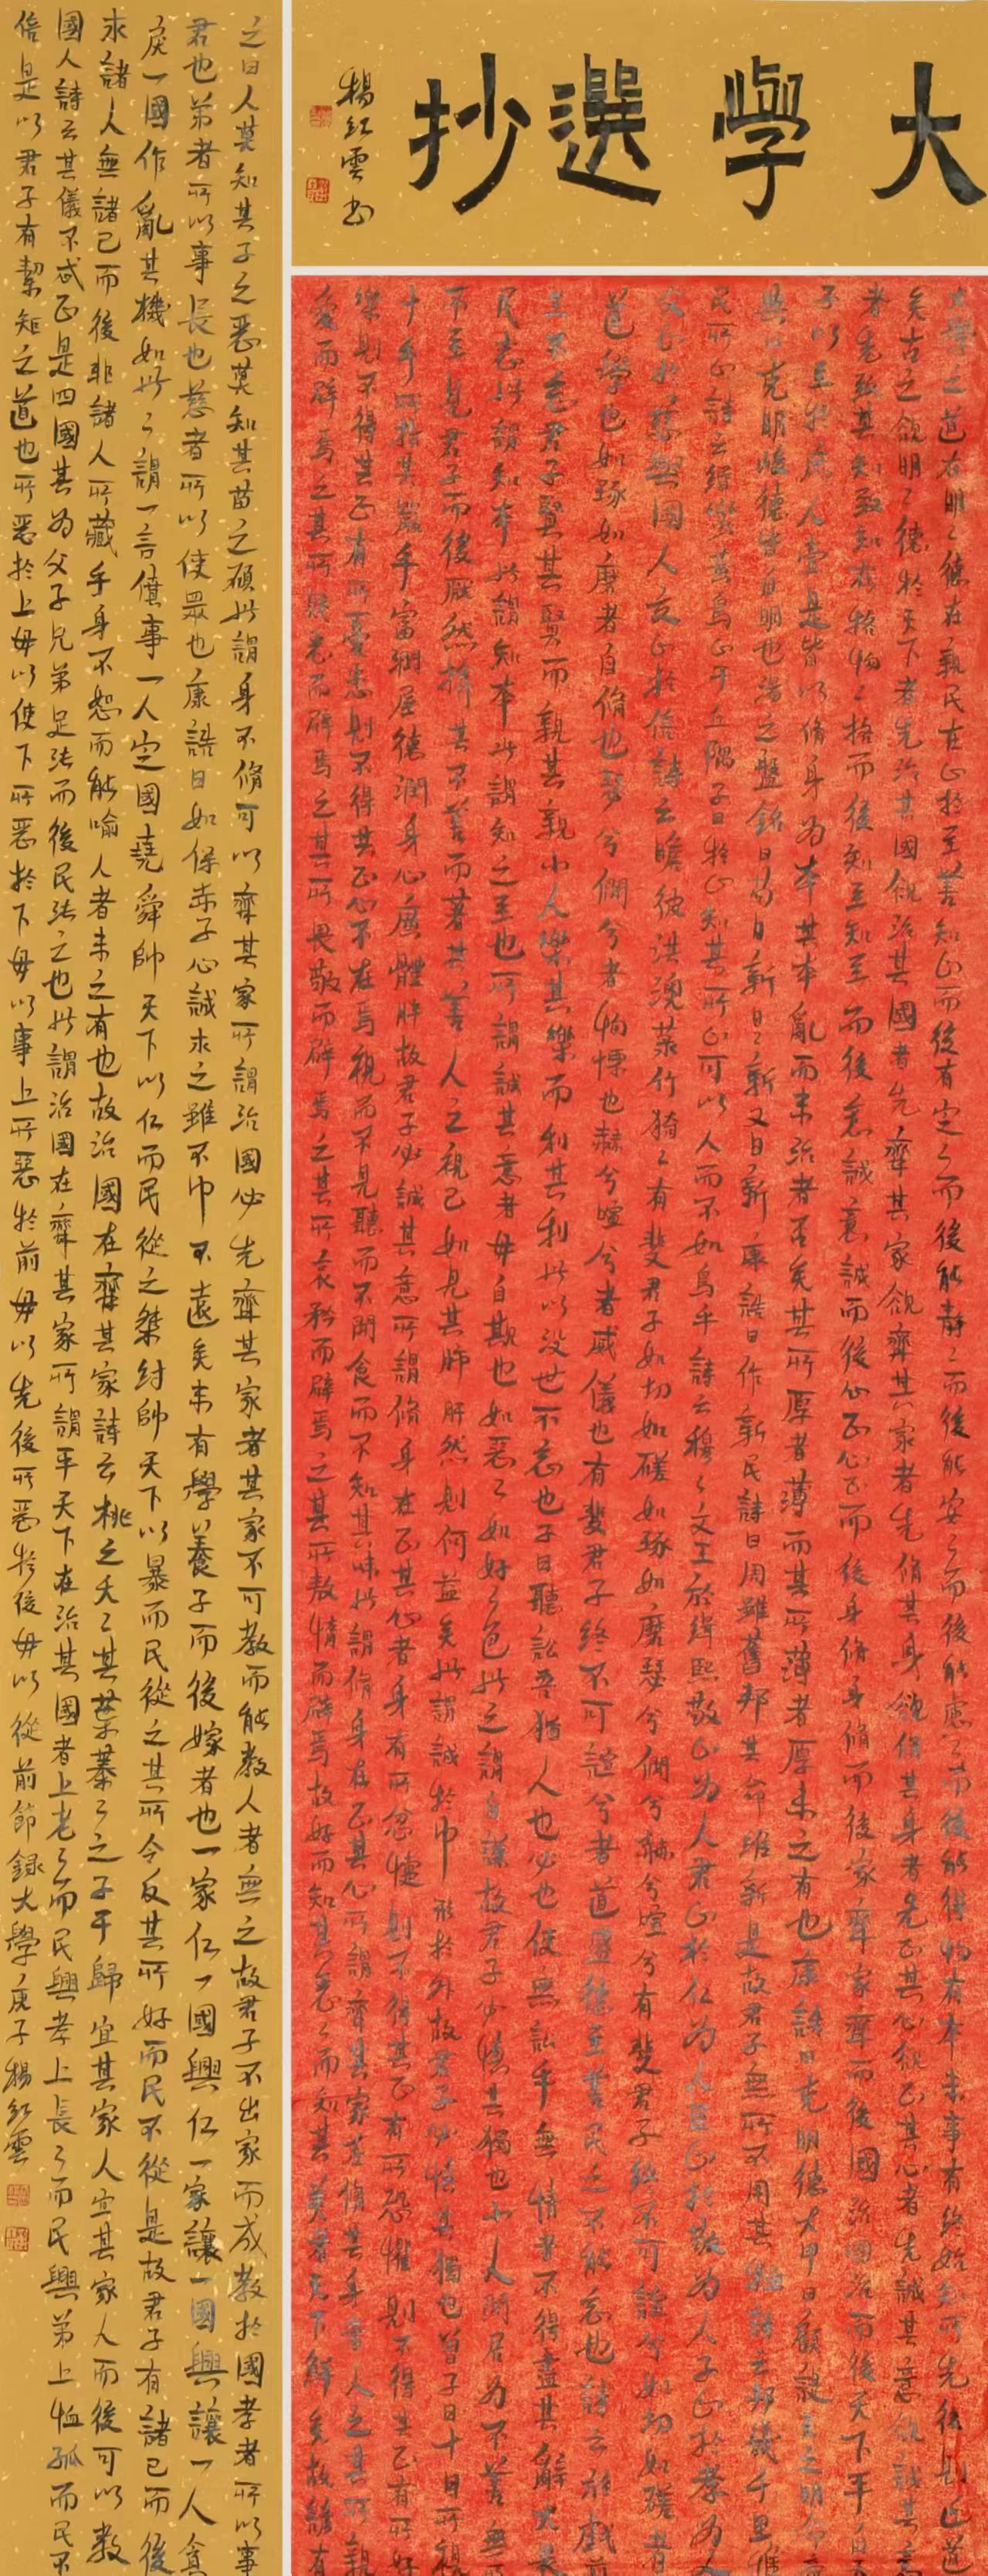 大學選抄
楊紅雲書
大學之道在明々德在親民在止於至善知止而後有定々而後能靜々而後能安々而後能慮々而後能得物有本末事有終始知所先後則近道
矣古之欲明々德於天下者先治其國欲治其國者先齊其家欲齊其家者先脩其身欲脩其身者先正其心欲正其心者先誠其意欲誠其意
者先致其知致知在格物々格而後知至知至而後意誠意誠而後心正心正而後身脩身脩而後家齊家齊而後國治國治而後天下平自天
子以至於庶人壹是皆以脩身為本其本亂而末治者否矣其所厚者薄而其所薄者厚未之有也康誥曰克明德大甲曰顧諟天之明命帝
典曰克明峻德皆自明也湯之盤銘曰苟日新日々新又日新康誥曰作新民詩曰周雖舊邦其命維新是故君子無所不用其極詩云邦畿千里惟
民所止詩云緡蠻黃鳥止于丘隅子曰於止知其所止可以人而不如鳥乎詩云穆々文王於緝熙敬止為人君止於仁為人臣止於敬為人子止於孝為人
父止於慈與國人交止於信詩云瞻彼淇澳菉竹猗々有斐君子如切如磋如琢如磨瑟兮僩兮赫兮喧兮有斐君子終不可諠兮如切如磋者
道學也如琢如磨者自脩也瑟兮僩兮者恂慄也赫兮喧兮者威儀也有斐君子終不可諠兮者道盛德至善民之不能忘也詩云於戲前
王不忘君子賢其賢而親其親小人樂其樂而利其利此以沒世不忘也子曰聽訟吾猶人也必也使無訟乎無情者不得盡其辭大畏
民志此謂知本此謂知本此謂知之至也所謂誠其意者毋自欺也如惡々如好々色此之謂自謙故君子必慎其獨也小人閒居為不善無所
不至見君子而後厭然揜其不善而著其善人之視己如見其肺肝然則何益矣此謂誠於中形於外故君子必慎其獨也曾子曰十目所視
十手所指其嚴乎富潤屋德潤身心廣體胖故君子必誠其意所謂脩身在正其心者身有所忿懥則不得其正有所恐懼則不得其正有所好
樂則不得其正有所憂患則不得其正心不在焉視而不見聽而不聞食而不知其味此謂脩身在正其心所謂齊其家在脩其身者人之其所親
愛而辟焉之其所賤惡而辟焉之其所畏敬而辟焉之其所哀矜而辟焉之其所敖惰而辟焉故好而知其惡々而知其美者天下鮮矣故諺有
之曰人莫知其子之惡莫知其苗之碩此謂身不脩可以齊其家所謂治國必先齊其家者其家不可教而能教人者無之故君子不出家而成教於國孝者所以事
君也弟者所以事長也慈者所以使眾也康誥曰如保赤子心誠求之雖不中不遠矣未有學養子而後嫁者也一家仁一國興仁一家讓一國興讓一人貪
戾一國作亂其機如此々謂一言僨事一人定國堯舜帥天下以仁而民從之桀紂帥天下以暴而民從之其所令反其所好而民不從是故君子有諸己而後
求諸人無諸己而後非諸人所藏乎身不恕而能喻人者未之有也故治國在齊其家詩云桃之夭々其葉蓁々之子于歸宜其家人宜其家人而後可以教
國人詩云其儀不忒正是四國其為父子兄弟足法而後民法之也此謂治國在齊其家所謂平天下在治其國者上老々而民興孝上長々而民興弟上恤孤而民不
倍是以君子有絜矩之道也所惡於上毋以使下所惡於下毋以事上所惡於前毋以先後所惡於後毋以從前節録大學庚子楊紅雲